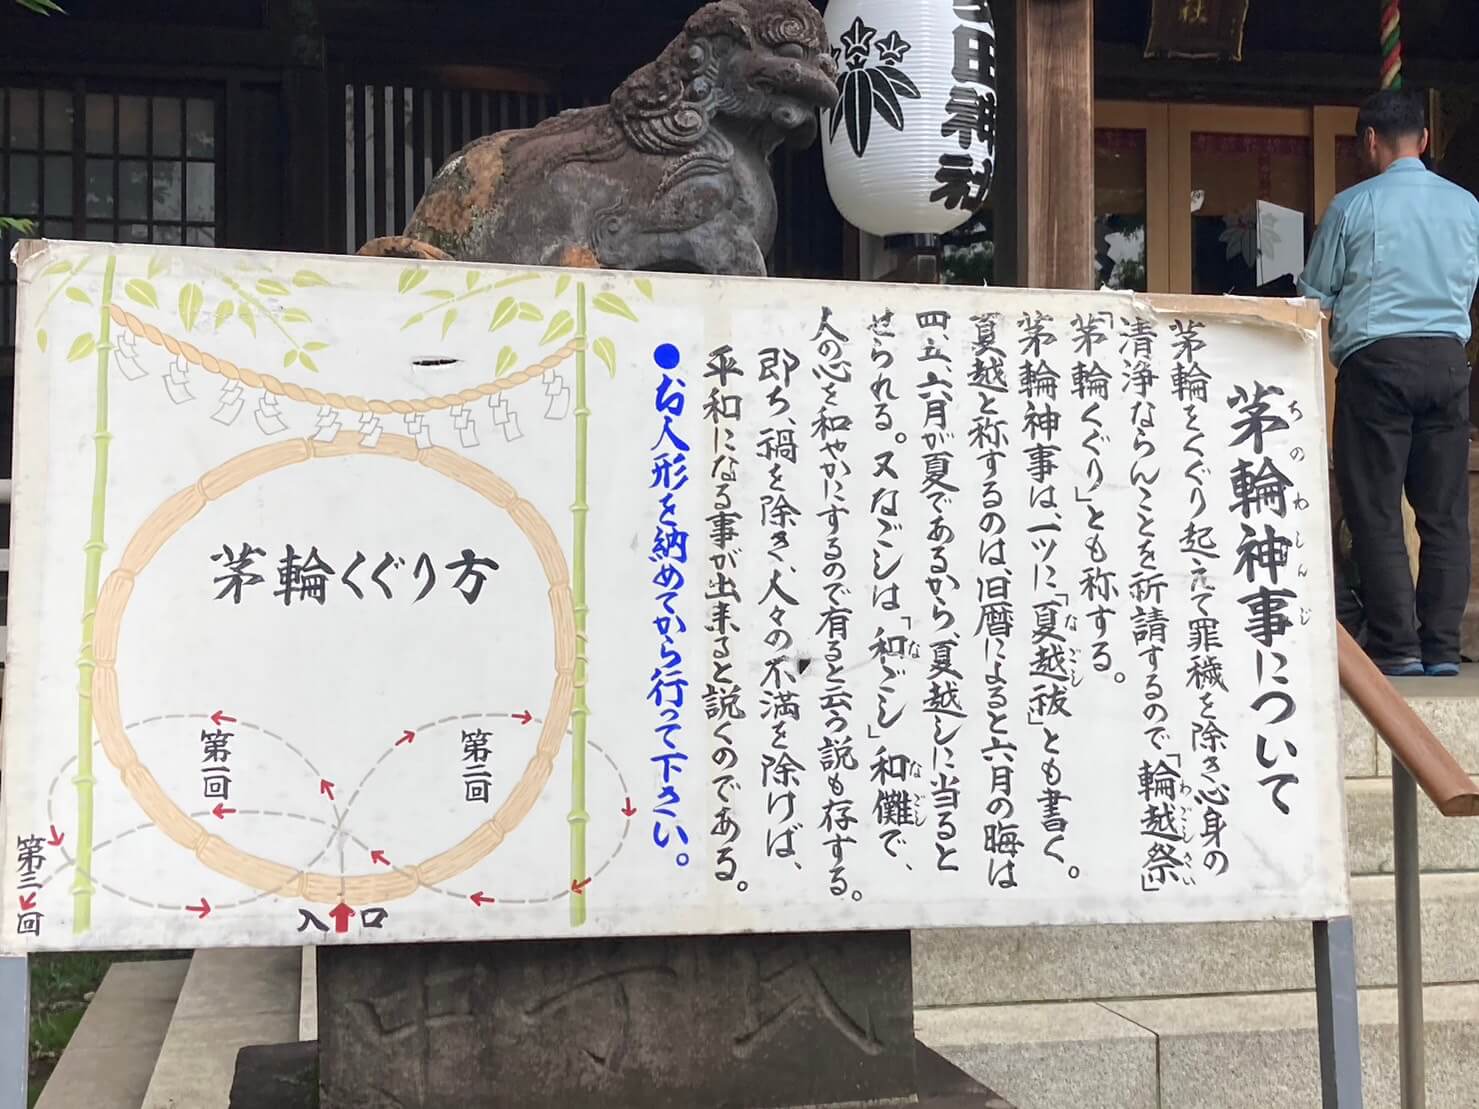 茅輪神事について
ちのわしんじ
茅輪をくぐり越えて罪穢を除き心身の
清浄ならんことを祈請するので「輪越祭」
わごしさい
「茅輪くぐり」とも称する。
茅輪神事は、一ツに「夏越祓」とも書く。
なごし
夏越と称するのは、旧暦によると六月の晦は
四、五、六月が夏であるから、夏越しに当ると
せられる。又なごシは「和ごシ」和儺で、
な
なごし
人の心を和やかにするので有ると云う説も存する。
即ち、禍を除き、人々の不満を除けば、
平和になる事が出来ると説くのである。
●お人形を納めてから行って下さい。
茅輪くぐり方
第一回
第二回
第三回
入口
田神社
社